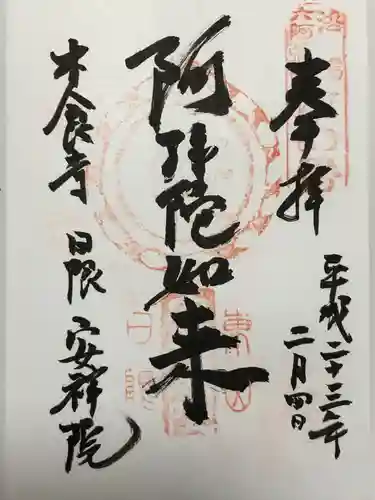 奉拝
平成二十三年
二月四日
阿弥陀如来
木食寺
日限 安祥院